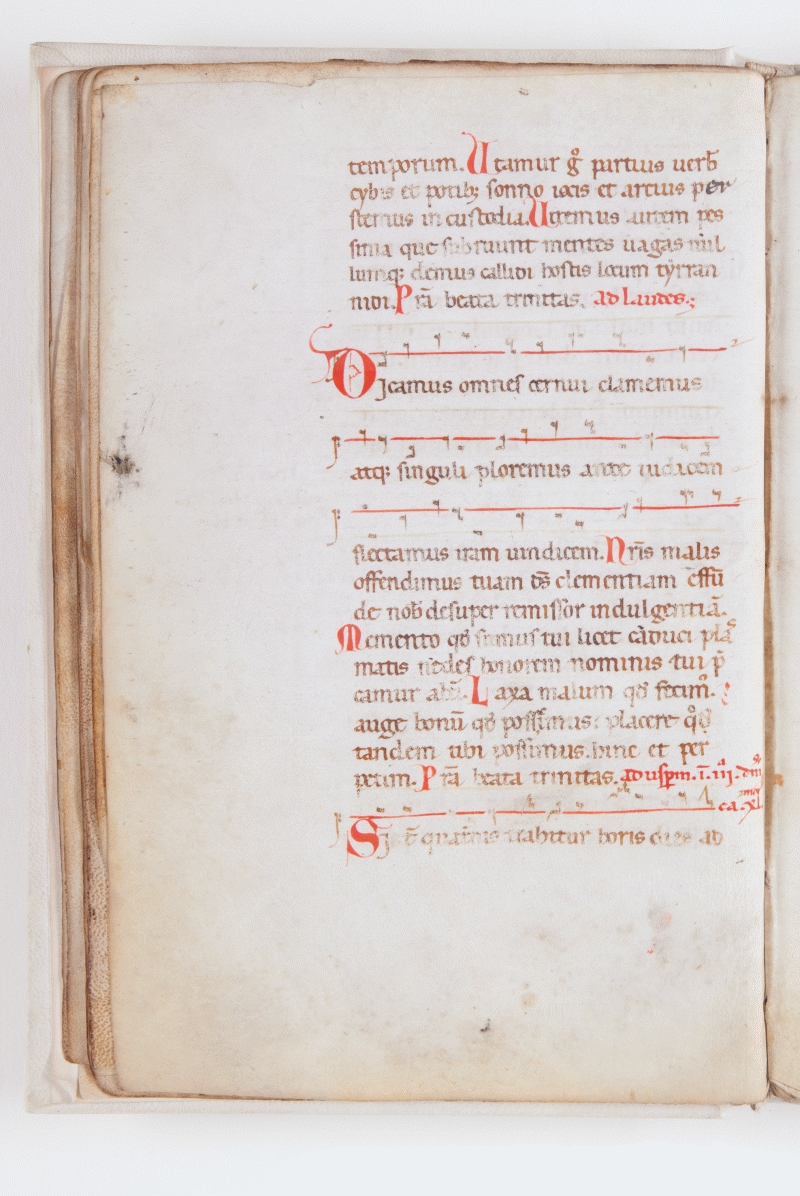 temporum. Utamur g̊ partius uerb̄
cybis et potibꝫ sonno iocis et artius per
stemus in custodia. Uitemus autem pes
sima que subruunt mentes uagas nul
lumqꝫ demus callidi hostis locum tyrran
nidi. Pr̄a beata trinitas. ad laudes.
Dicamus omnes cernui clamemus
atqꝫ singuli ploremus ante iudicem
flectamus iram uindicem. Nr̄is malis
offendimus tuam ds̄ clementiam effū
de nob̄ desuper remissor indulgentiā.
Memento qđ sumus tui licet caduci pla
matis ne des honorem nominis tui p̄
camur alt̄i. Laxa malum qđ fecim᷒.
auge bonū qđ possimus: placere qͦđ
tandem tibi possimus. hinc et per
petim. Pr̄a beata trinitas. ad uspm. ī. iij. dm̄
ca. xl
Sic t̄ quat̄nis trahitur horis dies ad